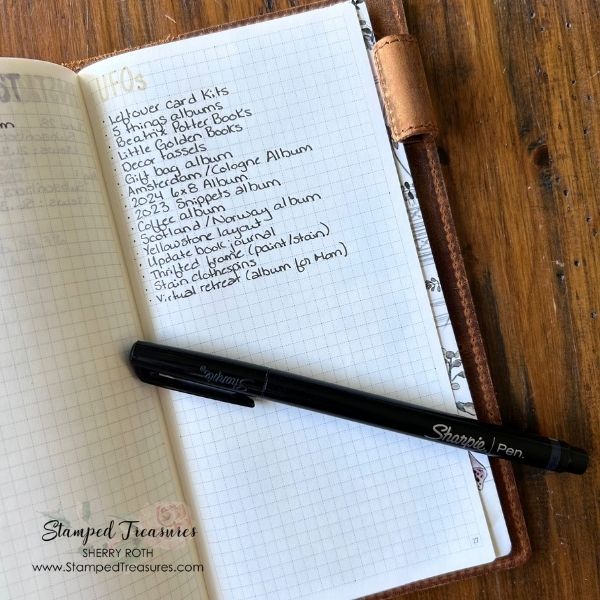 UFOs
· Leftover card kits
· 5 Things albums
· Beatrix Potter Books
· Little Golden Books
· Decor tassels
· Gift bag album
· Amsterdam/Cologne Album
· 2024 6x8 Album
· 2023 Snippets album
· Coffee album
· Scotland/Norway album
· Yellowstone layout
· Update book journal
· Thrifted frame (paint/stain)
· Stain clothespins
· Virtual retreat (album for Mom)
Sharpie
Sharpie | Pen.
Stamped Treasures
SHERRY ROTH
www.StampedTreasures.com